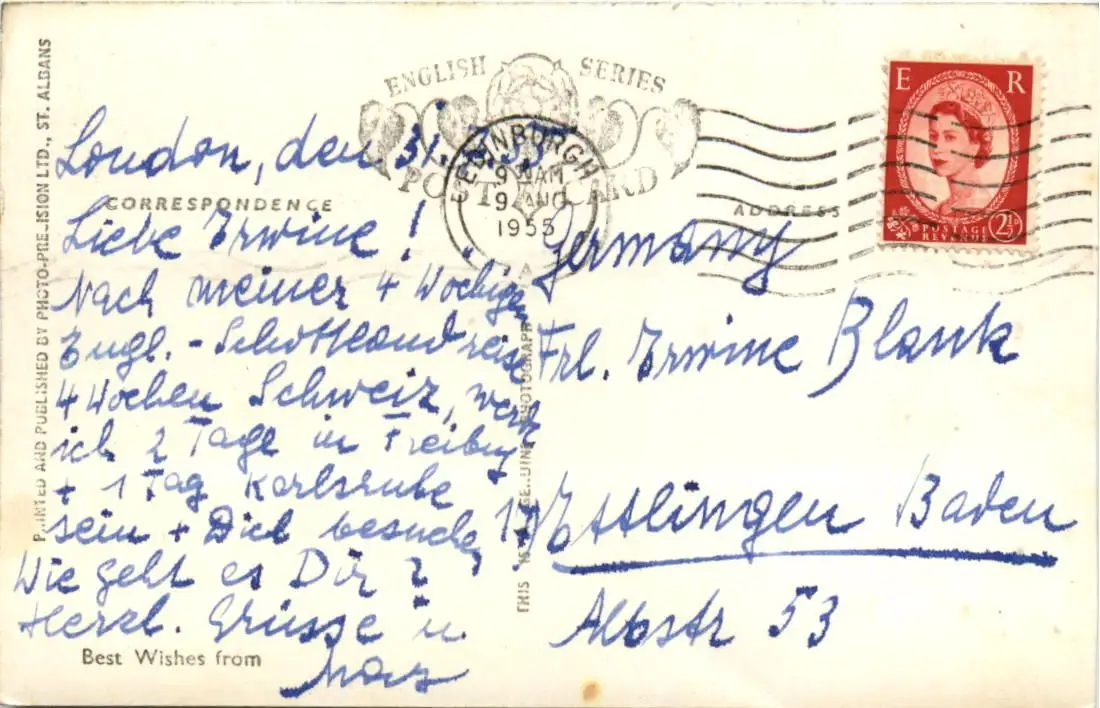 PRINTED AND PUBLISHED BY PHOTO-PRECISION LTD., ST. ALBANS
ENGLISH SERIES
POST CARD
EDINBURGH
9 AM
9 AUG
1955
E R
POSTAGE
REVENUE
2½
CORRESPONDENCE
ADDRESS
London, den 31.
Liebe Erwine!
Nach meiner 4 Wochigen
Engl. - Schottlandreise
4 Wochen Schweiz, werde
ich 2 Tage in Freiburg
+ 1 Tag Karlsruhe
sein + Dich besuchen
Wie geht es Dir?
Herzl. Grüsse u
Best Wishes from
THIS IS A GENUINE PHOTOGRAPH
Germany
Frl. Erwine Blank
Ettlingen Baden
Albstr 53